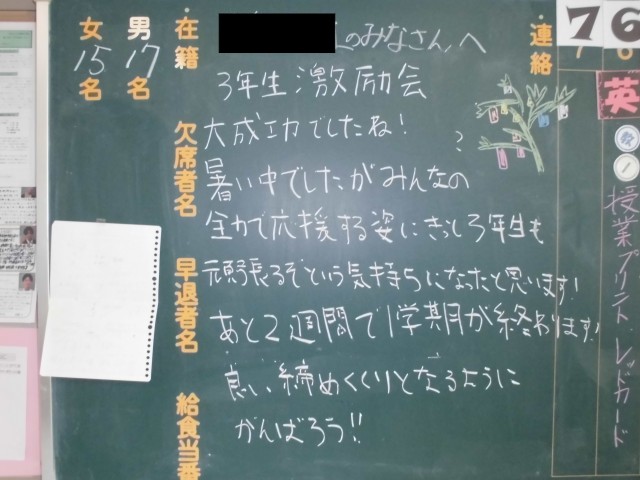 連絡
7 6
英
授業プリント レッドカード
のみなさんへ
3年生激励会
大成功でしたね!
暑い中でしたがみんなの
全力で応援する姿にきっと3年生も
頑張るぞという気持ちになったと思います!
あと2週間で1学期が終わります!
良い締めくくりとなるように
がんばろう!!
在籍
男17名
女15名
欠席者名
早退者名
給食当番